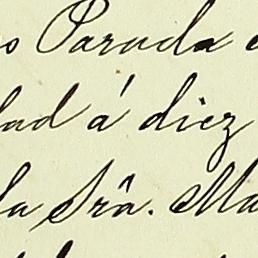 o Parada
dad á diez
la Srâ. Ma